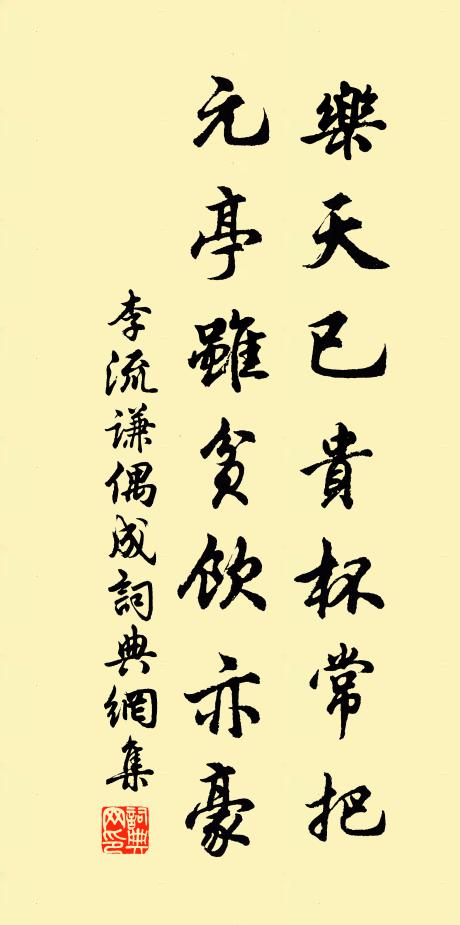 樂天已貴杯常把
元亭雖貧飲亦豪
李流谦偶成詞典網集
詞典网印